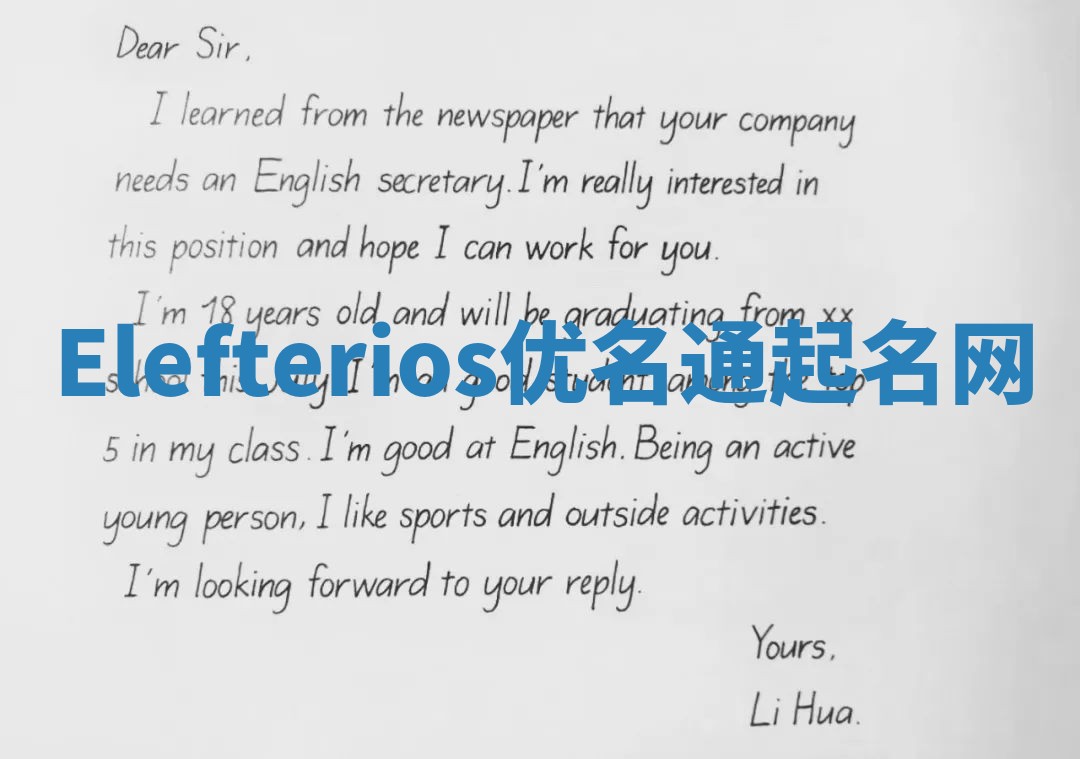 Dear Sir,
I learned from the newspaper that your company
needs an English secretary. I'm really interested in
this position and hope I can work for you.
I'm 18 years old and will be graduating from xx
Elefterios优名通起名网
school this July. I'm a good student among the top
5 in my class. I'm good at English. Being an active
young person, I like sports and outside activities.
I'm looking forward to your reply.
Yours,
Li Hua.